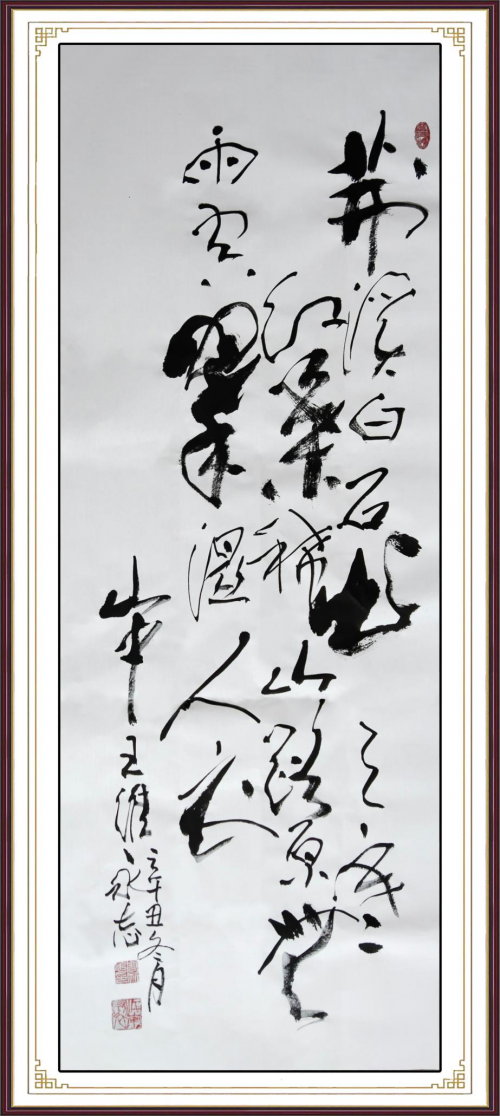 荆溪白石出天寒
红葉稀山路原無
雨空翠湿人衣
山中王維
辛丑冬月
永志